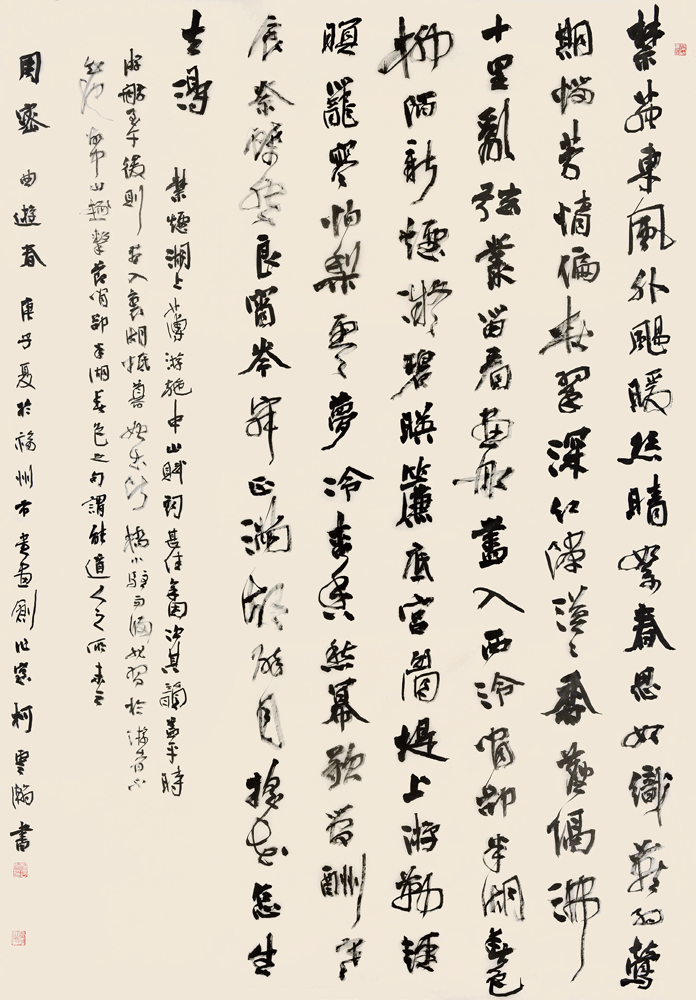 禁苑東風外颺暖絲晴絮春思如織燕約鶯
期惱芳情偏在翠深紅隙漠々香塵隔沸
十里亂弦叢笛看畫船盡入西泠閒卻半湖春色
柳陌新煙凝碧映簾底宮眉堤上游勒輕
暝籠寒怕梨雲夢冷杏香愁冪歌管酬寒
食奈蝶怨良宵岑寂正滿湖碎月搖花怎生
去得
禁煙湖上薄游施中山賦詞甚佳余因次其韻蓋平時
游舫至午後則盡入裏湖抵暮始出斷橋小駐而歸非習於游者不
知也故中山極擊節閒卻半湖春色之句謂能道人之所未云
周密 曲遊春 庚子夏於福州市書畫創作室柯雲瀚書